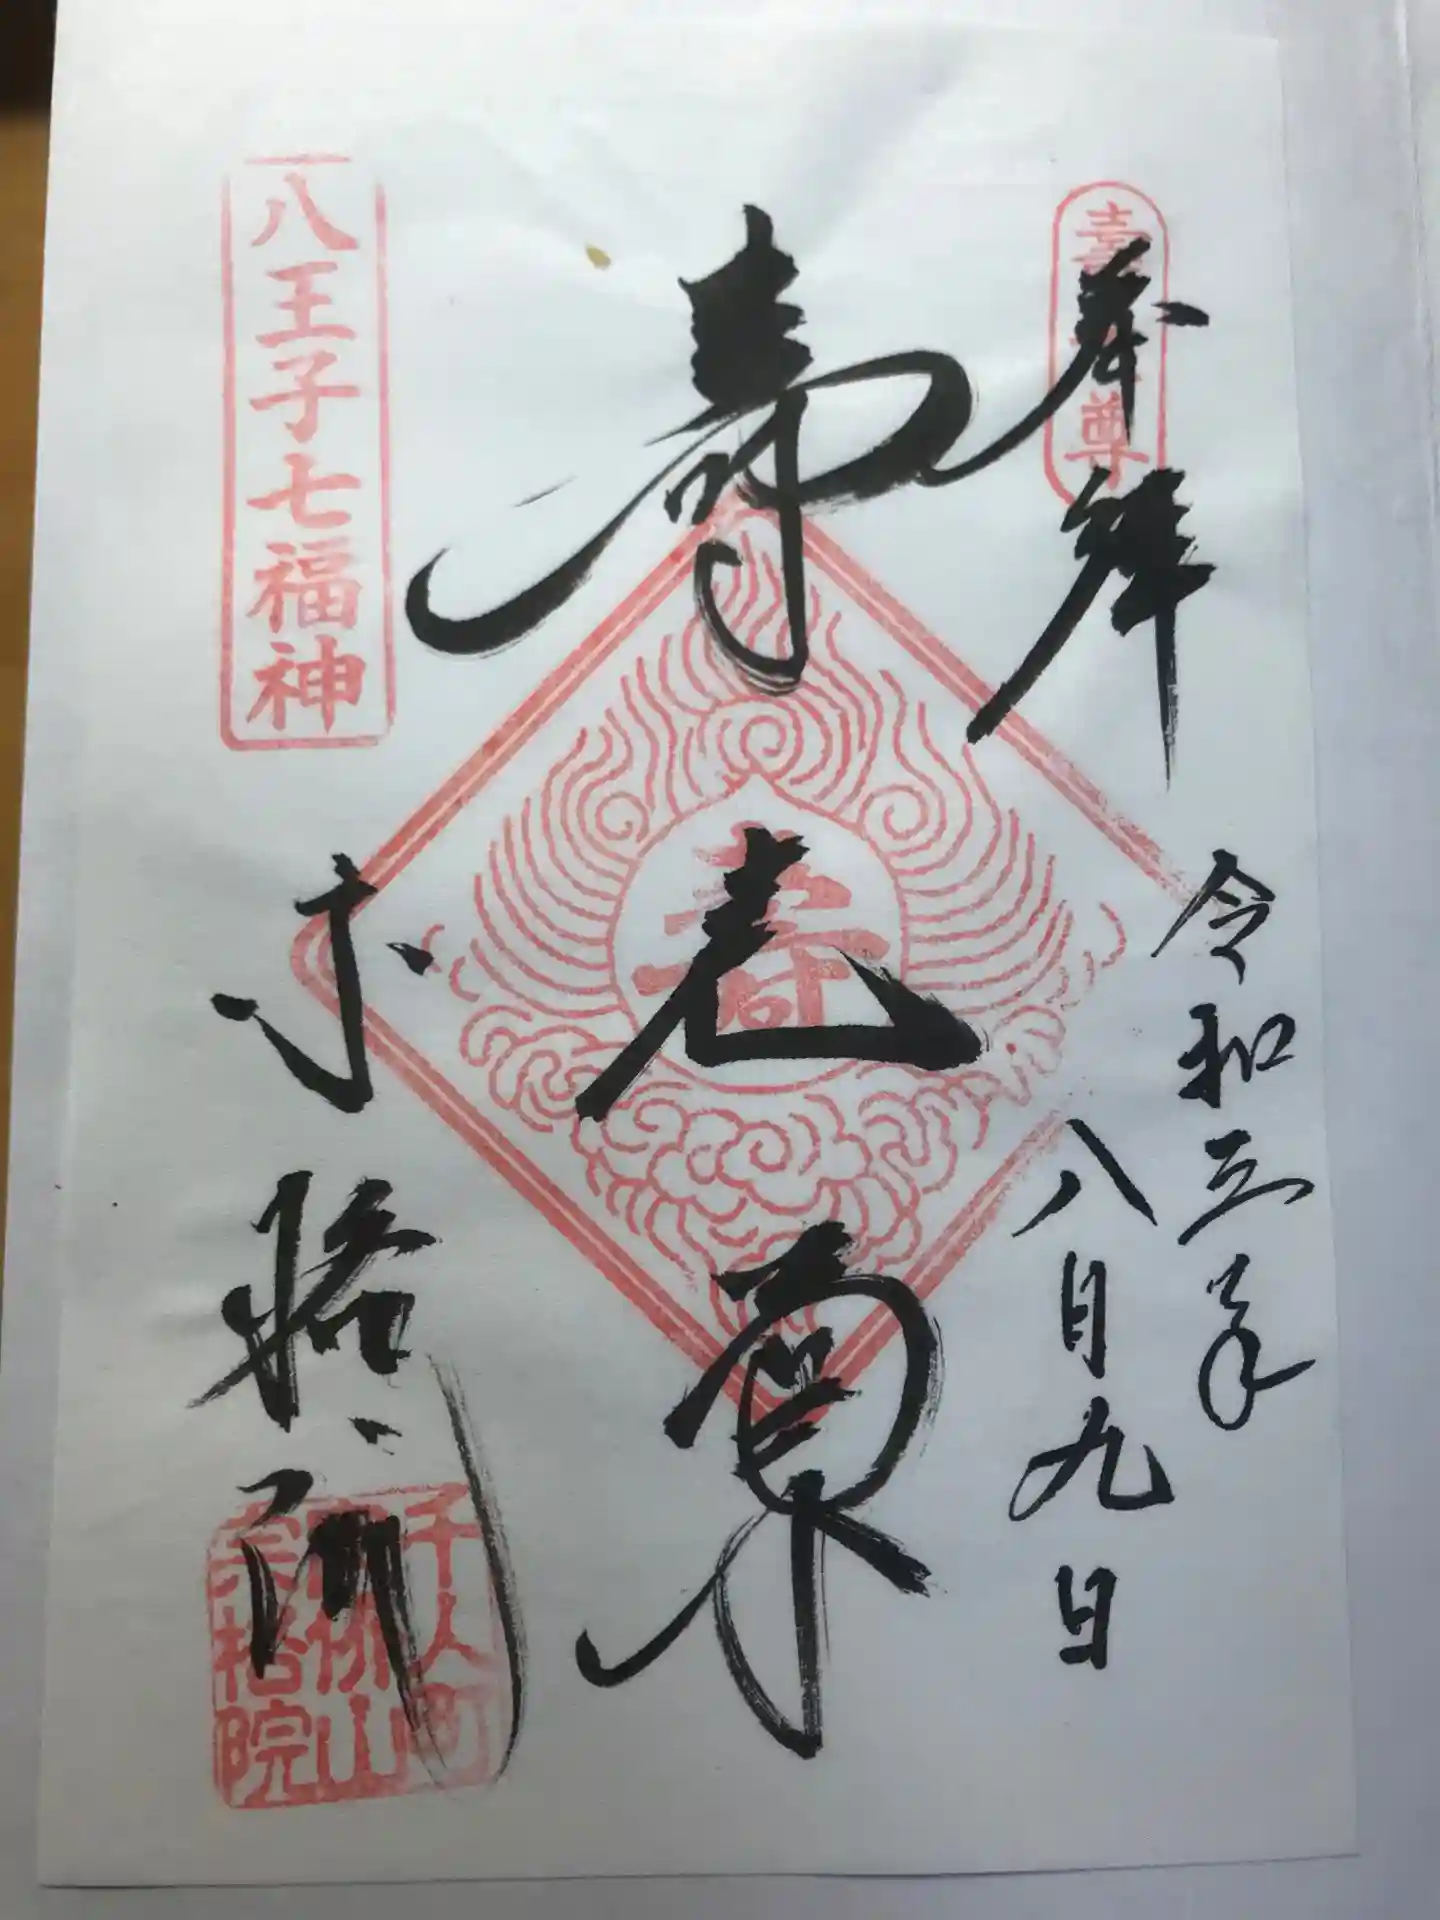 奉拝
令和三年
八月九日
寿老尊
寿
八王子七福神
宗格院
千人町
山
宗格院